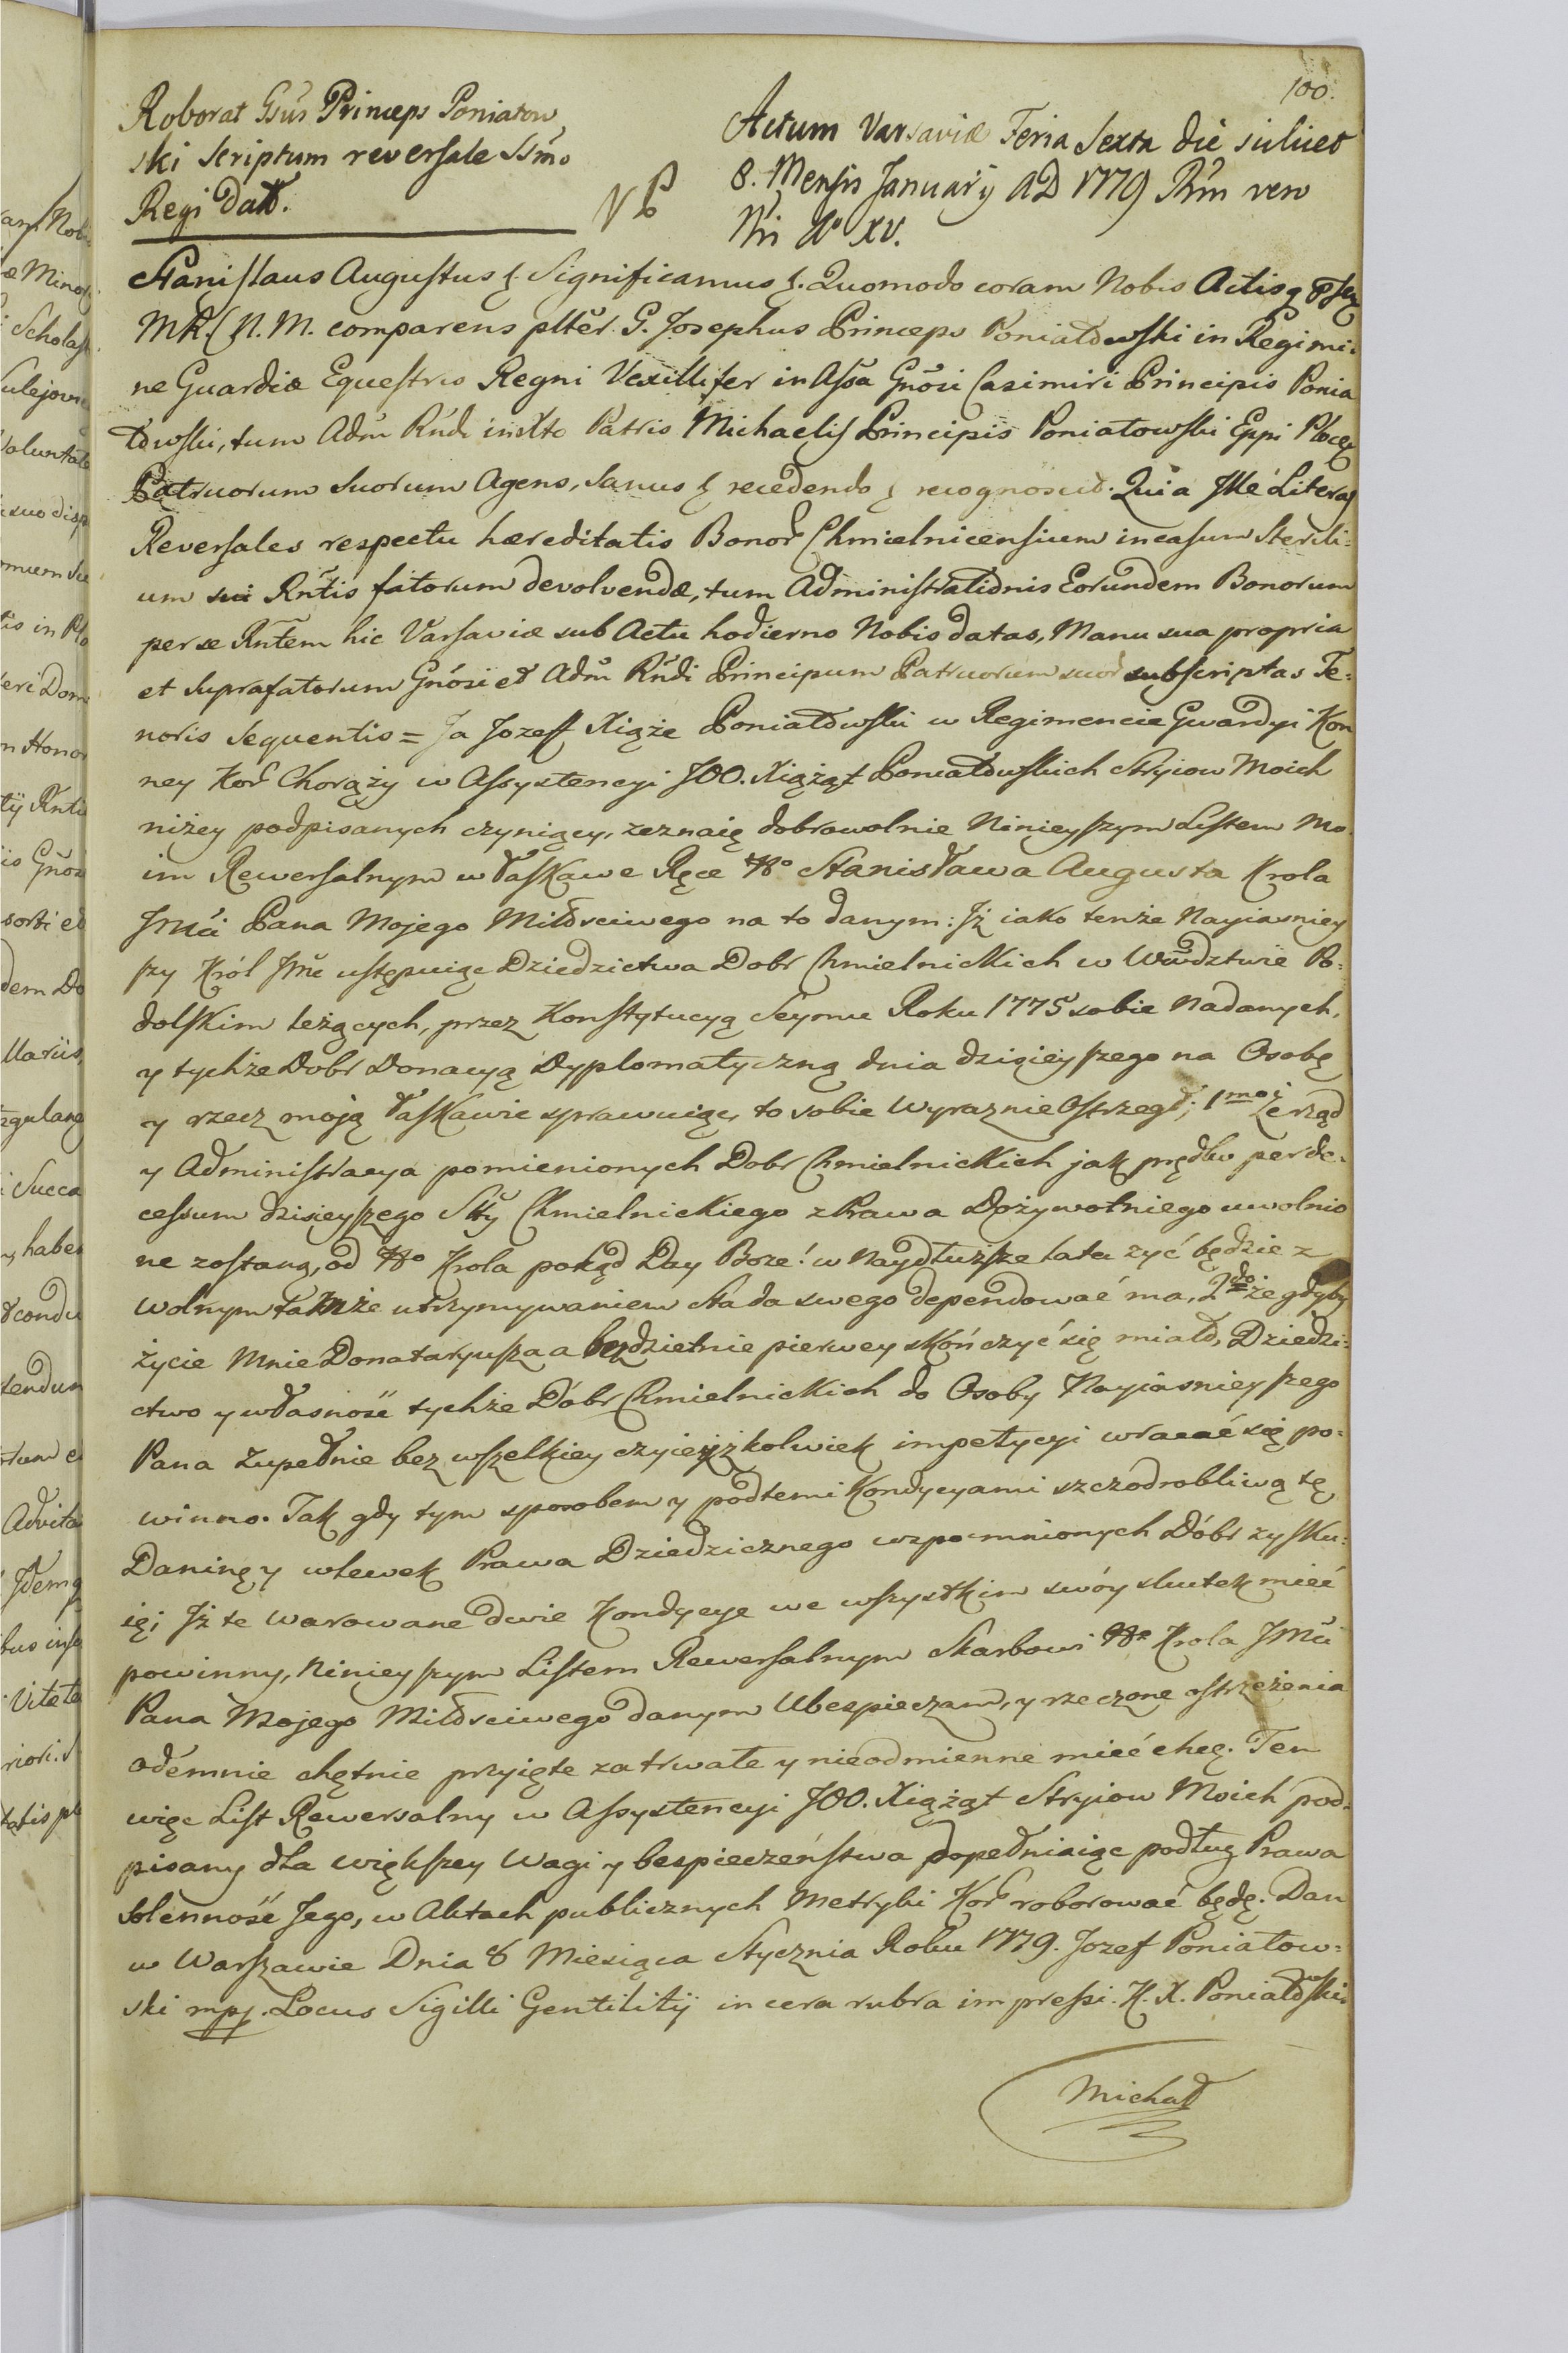 100.
Roborat Gsus Princeps Poniatow,
ski Scriptum reversale Ssmo
Regi Datt.
Actum Varsaviæ Feria Sexta die scilicet
8. Mensis January AD 1779 Rni vero
Nri Ao XV.
Stanislaus Augustus Significamus. Quomodo coram Nobis Actisq
MR. N. M. comparens plter. G. Josephus Princeps Poniatowski in Regimi:
ne Guardiæ Equestris Regni Vexillifer in Assa Gnosi Casimiri Principis Ponia
towski, tum Adm Rndi in Xto Patris Michaelis Principis Poniatowski Eppi Plocen
Patruorum Suorum Agens, Sanus recedendo recognovit. Quia Ille Literas
Reversales respectu hæreditatis Bonor Chmielnicensium in casum sterili:
um sui Rntis fatorum devolvendæ, tum Administrationis Eorundem Bonorum
per se Rntem hic Varsaviæ sub Actu hodierno Nobis datas, Manu sua propria
et Suprafatorum Gnosi et Adm Rndi Principum Patruorum suor subscriptas Te:
noris Sequentis = Ja Jozeff Xiąże Poniatowski w Regimencie Gwardyi Kon
ney Kor Chorąży w Assystencyi JOO. Xiążąt Poniatowskich Stryiow Moich
niżey podpisanych czyniący, zeznaię dobrowolnie Ninieyszym Listem Mo
im Rewersalnym w łaskawe Ręce Stanisława Augusta Krola
Jmći Pana Mojego Miłosciwego na to danym: Jż iako tenże Nayiasniey
szy Król Jmć ustępuiąc Dziedzictwa Dobr Chmielnickich w Wwdztwie Po:
dolskim leżących, przez Konstytucyą Seymu Roku 1775 sobie Nadanych,
y tychże Dobr Donacyą Dyplomatyczną dnia dzisieyszego na Osobę
y rzecz moją łaskawie sprawuiąc, to sobie Wyraznie Ostrzegł; 1mo Że rząd
y Administracya pomienionych Dobr Chmielnickich jak prędko per de:
cessum dzisieyszego Stty Chmielnickiego z Prawa Dożywotniego uwolnio
ne zostaną, od Krola pokąd Day Boze! w Naydłuższe lata żyć będzie z
wolnym tamże utrzymywaniem Stada swego dependować ma, 2do że gdyby
życie Mnie Donataryusza a bezdzietnie pierwey skończyć się miało, Dziedzi:
ctwo y własność tychże Dóbr Chmielnickich do Osoby Nayiasnieyszego
Pana Zupełnie bez wszelkiey czyieyżkolwiek impetycyi wracać się po:
winno. Tak gdy tym sposobem y podtemi Kondycyami szczodrobliwą tę
Daninę y wlewek Prawa Dziedzicznego wzpomnionych Dóbr zysku:
ię; Jż te warowane dwie Kondycye we wszystkim swóy skutek mieć
powinny, Ninieyszym Listem Rewersalnym Skarbowi Krola JMći
Pana Mojego Miłosciwego danym Ubezpieczam, y rzeczone ostrzeżenia
odemnie chętnie przyięte za trwałe y nieodmienne mieć chcę. Ten
więc List Rewersalny w Assystencyi JOO. Xiążąt Stryiow Moich pod:
pisany dla większey Wagi y bespieczeństwa dopełniaiąc podług Prawa
Solenność Jego, w Aktach publicznych Metryki Kor roborować będę. Dan
w Warszawie Dnia 8 Miesiąca Stycznia Roku 1779. Jozef Poniatow:
ski mpp. Locus Sigilli Gentilitÿ in cera rubra impressi. K. X. Poniatowski
Michał